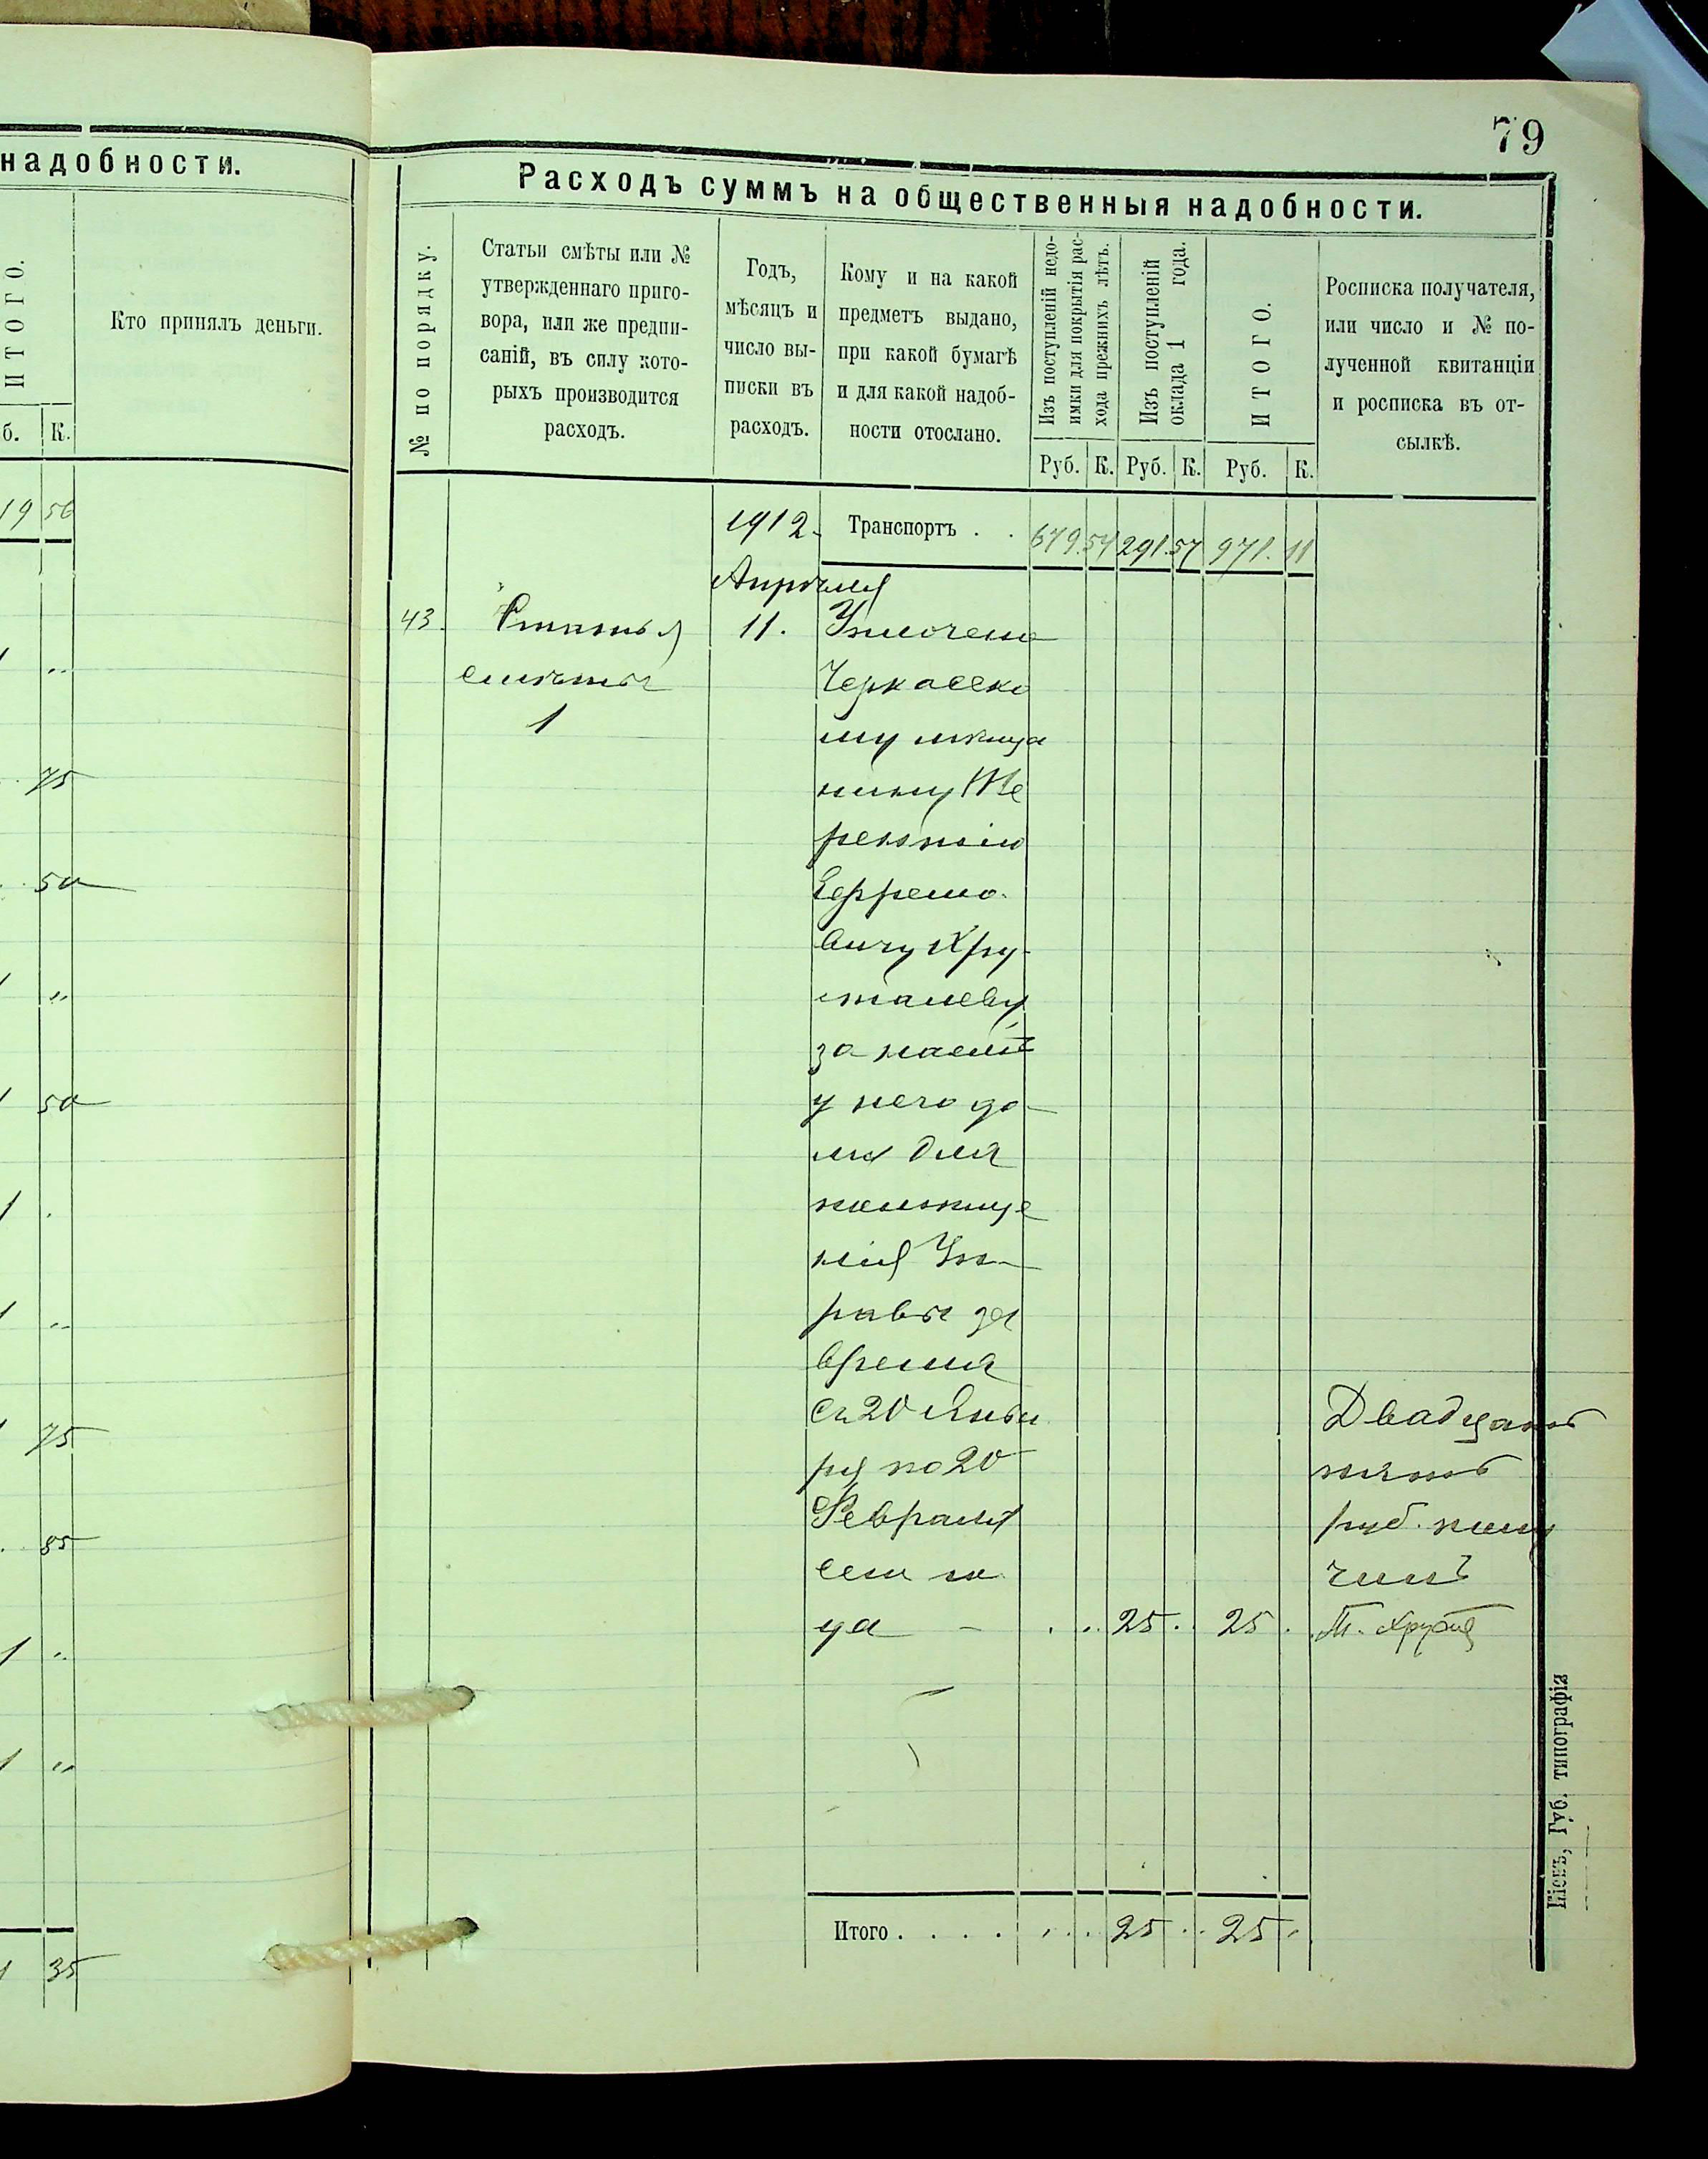 79
надобности.
ИТОГО.
Кто принялъ деньги.
б. К.
19 56
"
75
50
"
50
"
75
85
1 "
1 "
1 35
Расходъ суммъ на общественныя надобности.
№ по порядку.
Статьи смѣты или №
утвержденнаго приго-
вора, или же предпи-
саній, въ силу кото-
рыхъ производится
расходъ.
Годъ,
мѣсяцъ и
число вы-
писки въ
расходъ.
Кому и на какой
предметъ выдано,
при какой бумагѣ
и для какой надоб-
ности отослано.
Изъ поступленій недо-
имки для покрытія рас-
хода прежнихъ лѣтъ.
Изъ поступленій
оклада 1 года.
ИТОГО.
Росписка получателя,
или число и № по-
лученной квитанціи
и росписка въ от-
сылкѣ.
Руб. К. Руб. К. Руб. К.
1912. Транспортъ . . 679.54 291.57 971.11
Апрѣля
43. Статья 11. Уплочено
смѣты Черкасско
1 му мѣща
нину Те
рентію
Ефремо-
вичу Хру
сталеву
за наемъ
у него до-
ма для
помѣще
нія Уп-
равы за
время
съ 20 Янва Двадцать
ря по 20 пять
Февраля руб. полу
сего го чилъ
да - . .. 25 .. 25 .
Итого . . . . . .. 25 .. 25 .
Кіевъ, Губ. типографія